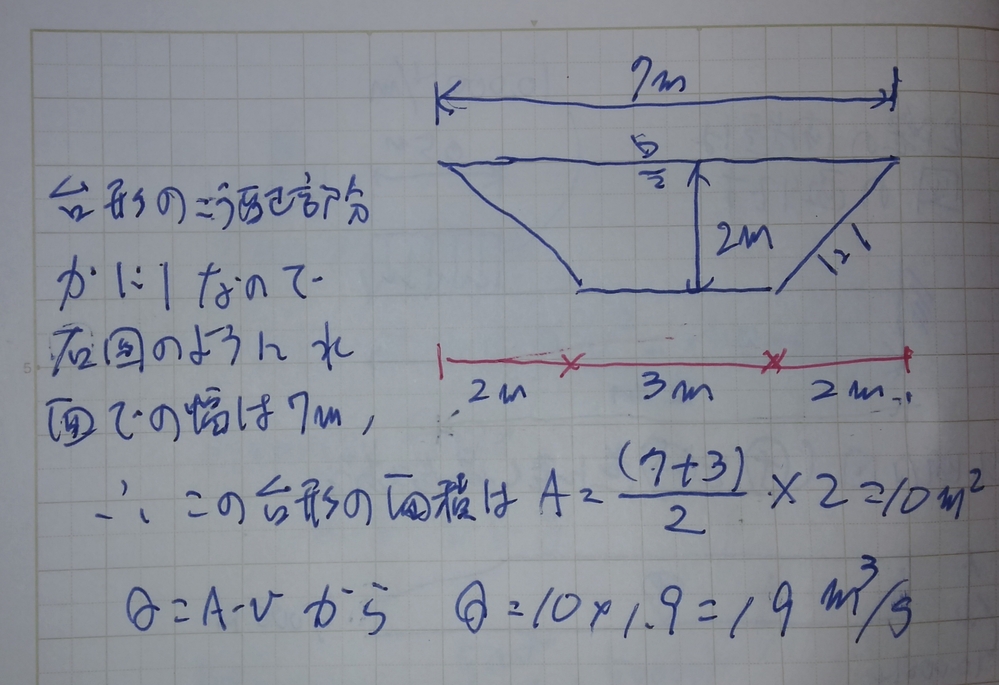 7m
台形のこう配部分
が1:1なので
2m
1:1
右図のように水
面での幅は7m,
2m 3m 2m
∴ この台形の面積は A = (7+3)/2 × 2 = 10m²
Q = A・v から Q = 10 × 1.9 = 19 m³/s